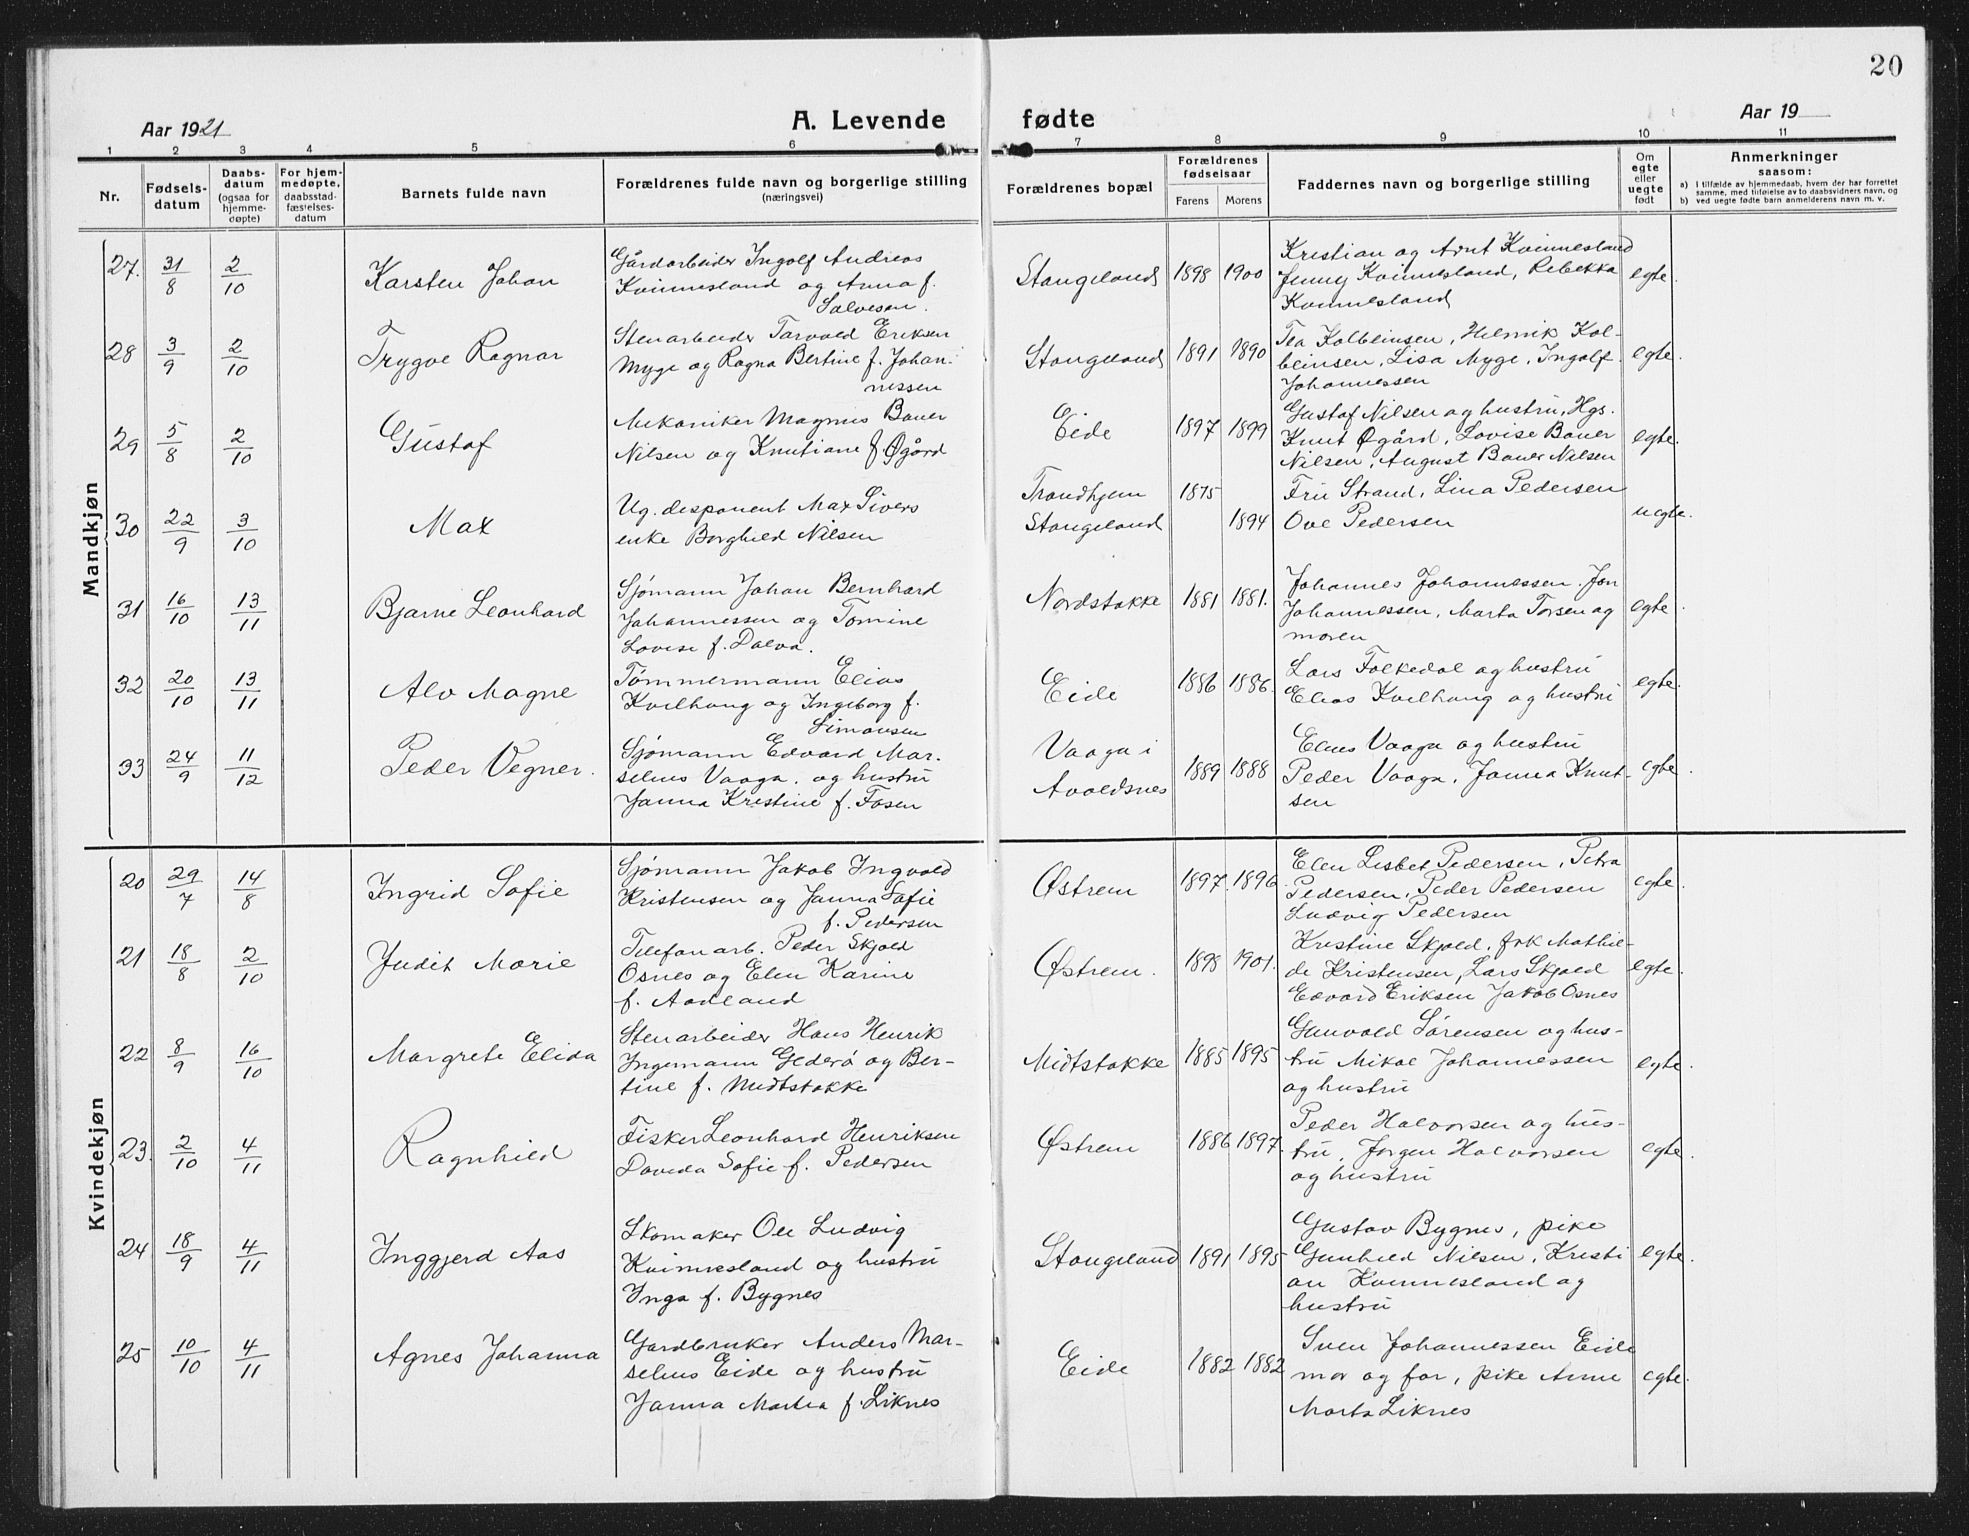 20
Aar 1921
A. Levende
fødte
Aar 19
1 2 3 4 5 6 7 8 9 10 11
Nr.
Fødsels-
datum
Daabs-
datum
(ogsaa for
hjemme-
døpte)
For hjem-
medøpte,
daabsstad-
fæstelses-
datum
Barnets fulde navn
Forældrenes fulde navn og borgerlige stilling
(næringsvei)
Forældrenes bopæl
Forældrenes
fødselsaar
Farens Morens
Faddernes navn og borgerlige stilling
Om
egte
eller
uegte
født
Anmerkninger
saasom:
a) I tilfælde av hjemmedaab, hvem der har forrettet
samme, med tilføielse av to daabsvidners navn, og
b) ved uegte fødte barn anmelderens navn m. v.
Mandkjøn
27. 31/8 2/10 Karsten Johan
Gårdarbeider Ingolf Andreas
Kvinnesland og Anna f.
Salvesen.
Stangeland 1898 1900
Kristian og Arnt Kvinnesland
Jenny Kvinnesland, Rebekka
Kvinnesland
egte.
28 3/9 2/10 Trygve Ragnar
Stenarbeider Tarvald Eriksen
Myge og Ragna Bertine f. Johan-
nessen
Stangeland 1891 1890
Tea Kolbeinsen, Helmik Kol-
beinsen, Lisa Myge, Ingolf
Johannessen
egte.
29 5/8 2/10 Gustaf
Mekaniker Magnus Bauer
Nilsen og Knutiane f. Øgård
Eide 1897 1899
Gustaf Nilsen og hustru, Hgs.
Knut Øgård, Lovise Bauer
Nilsen, August Bauer Nilsen
egte.
30 22/9 3/10 Max
Ug. desponent Max Sivers
enke Borghild Nilsen
Trondhjem 1875
Stangeland 1894
Fru Strand, Lina Pedersen
Ove Pedersen
uegte.
31 16/10 13/11 Bjarne Leonhard
Sjømann Johan Bernhard
Johannessen og Tomine
Lovise f. Dalva.
Nordstokke 1881 1881.
Johannes Johannessen. Jon
Johannessen, Marta Torsen og
moren
egte.
32 20/10 13/11 Alv Magne
Tømmermann Elias
Kvilhaug og Ingeborg f.
Simonsen
Eide 1886 1886.
Lars Folkedal og hustru
Elias Kvilhaug og hustru
egte.
33 24/9 11/12 Peder Vegner.
Sjømann Edvard Mar-
selius Vaaga, og hustru
Janna Kristine f. Fosen
Vaaga i
Avaldsnes
1889 1888
Elues Vaaga og hustru
Peder Vaaga, Janna Knut-
sen
egte.
Kvindekjøn
20 29/7 14/8 Ingrid Sofie
Sjømann Jakob Ingvald
Kristensen og Janna Sofie
f. Pedersen
Østrem 1897. 1896
Elen Lisbet Pedersen, Petra
Pedersen, Peder Pedersen
Ludvig Pedersen
egte.
21 18/8 2/10 Judit Marie
Telefonarb. Peder Skjold
Osnes og Elen Karine
f. Aadland
Østrem. 1898 1901.
Kristine Skjold, frk Mathil-
de Kristensen, Lars Skjold
Edvard Eriksen Jakob Osnes
egte.
22 8/9 16/10 Margrete Elida
Stenarbeider Hans Henrik
Ingemann Gederø og Ber-
tine f. Midtstokke
Midtstokke 1885 1895
Gunvald Sørensen og hus-
tru Mikal Johannessen
og hustru
egte.
23. 2/10 4/11 Ragnhild
Fisker Leonhard Henriksen
Davida Sofie f. Pedersen
Østrem 1886 1897.
Peder Halvorsen og hus-
tru, Jørgen Halvorsen
og hustru
egte.
24 18/9 4/11 Inggjerd Aas
Skomaker Ole Ludvig
Kvinnesland og hustru
Inga f. Bygnes
Stangeland 1891 1895
Gustav Bygnes, pike
Gunhild Nilsen, Kristi
an Kvinnesland og
hustru
egte.
25 10/10 4/11 Agnes Johanna
Gardbruker Anders Mar-
selius Eide og hustru
Janna Marta f. Liknes
Eide 1882 1882
Sven Johannessen Eide
mor og far, pike Anne
Marta Liknes
egte.